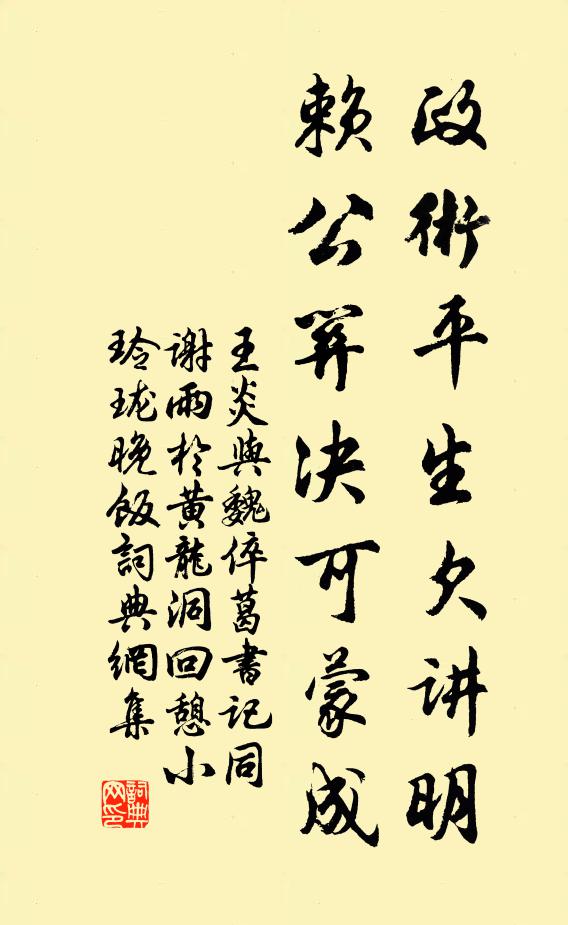 政術平生欠讲明
賴公筭决可蒙成
王炎與魏倅葛書記同
謝雨於黄龍洞回憩小
玲珑晚飯詞典網集
詞典
网印